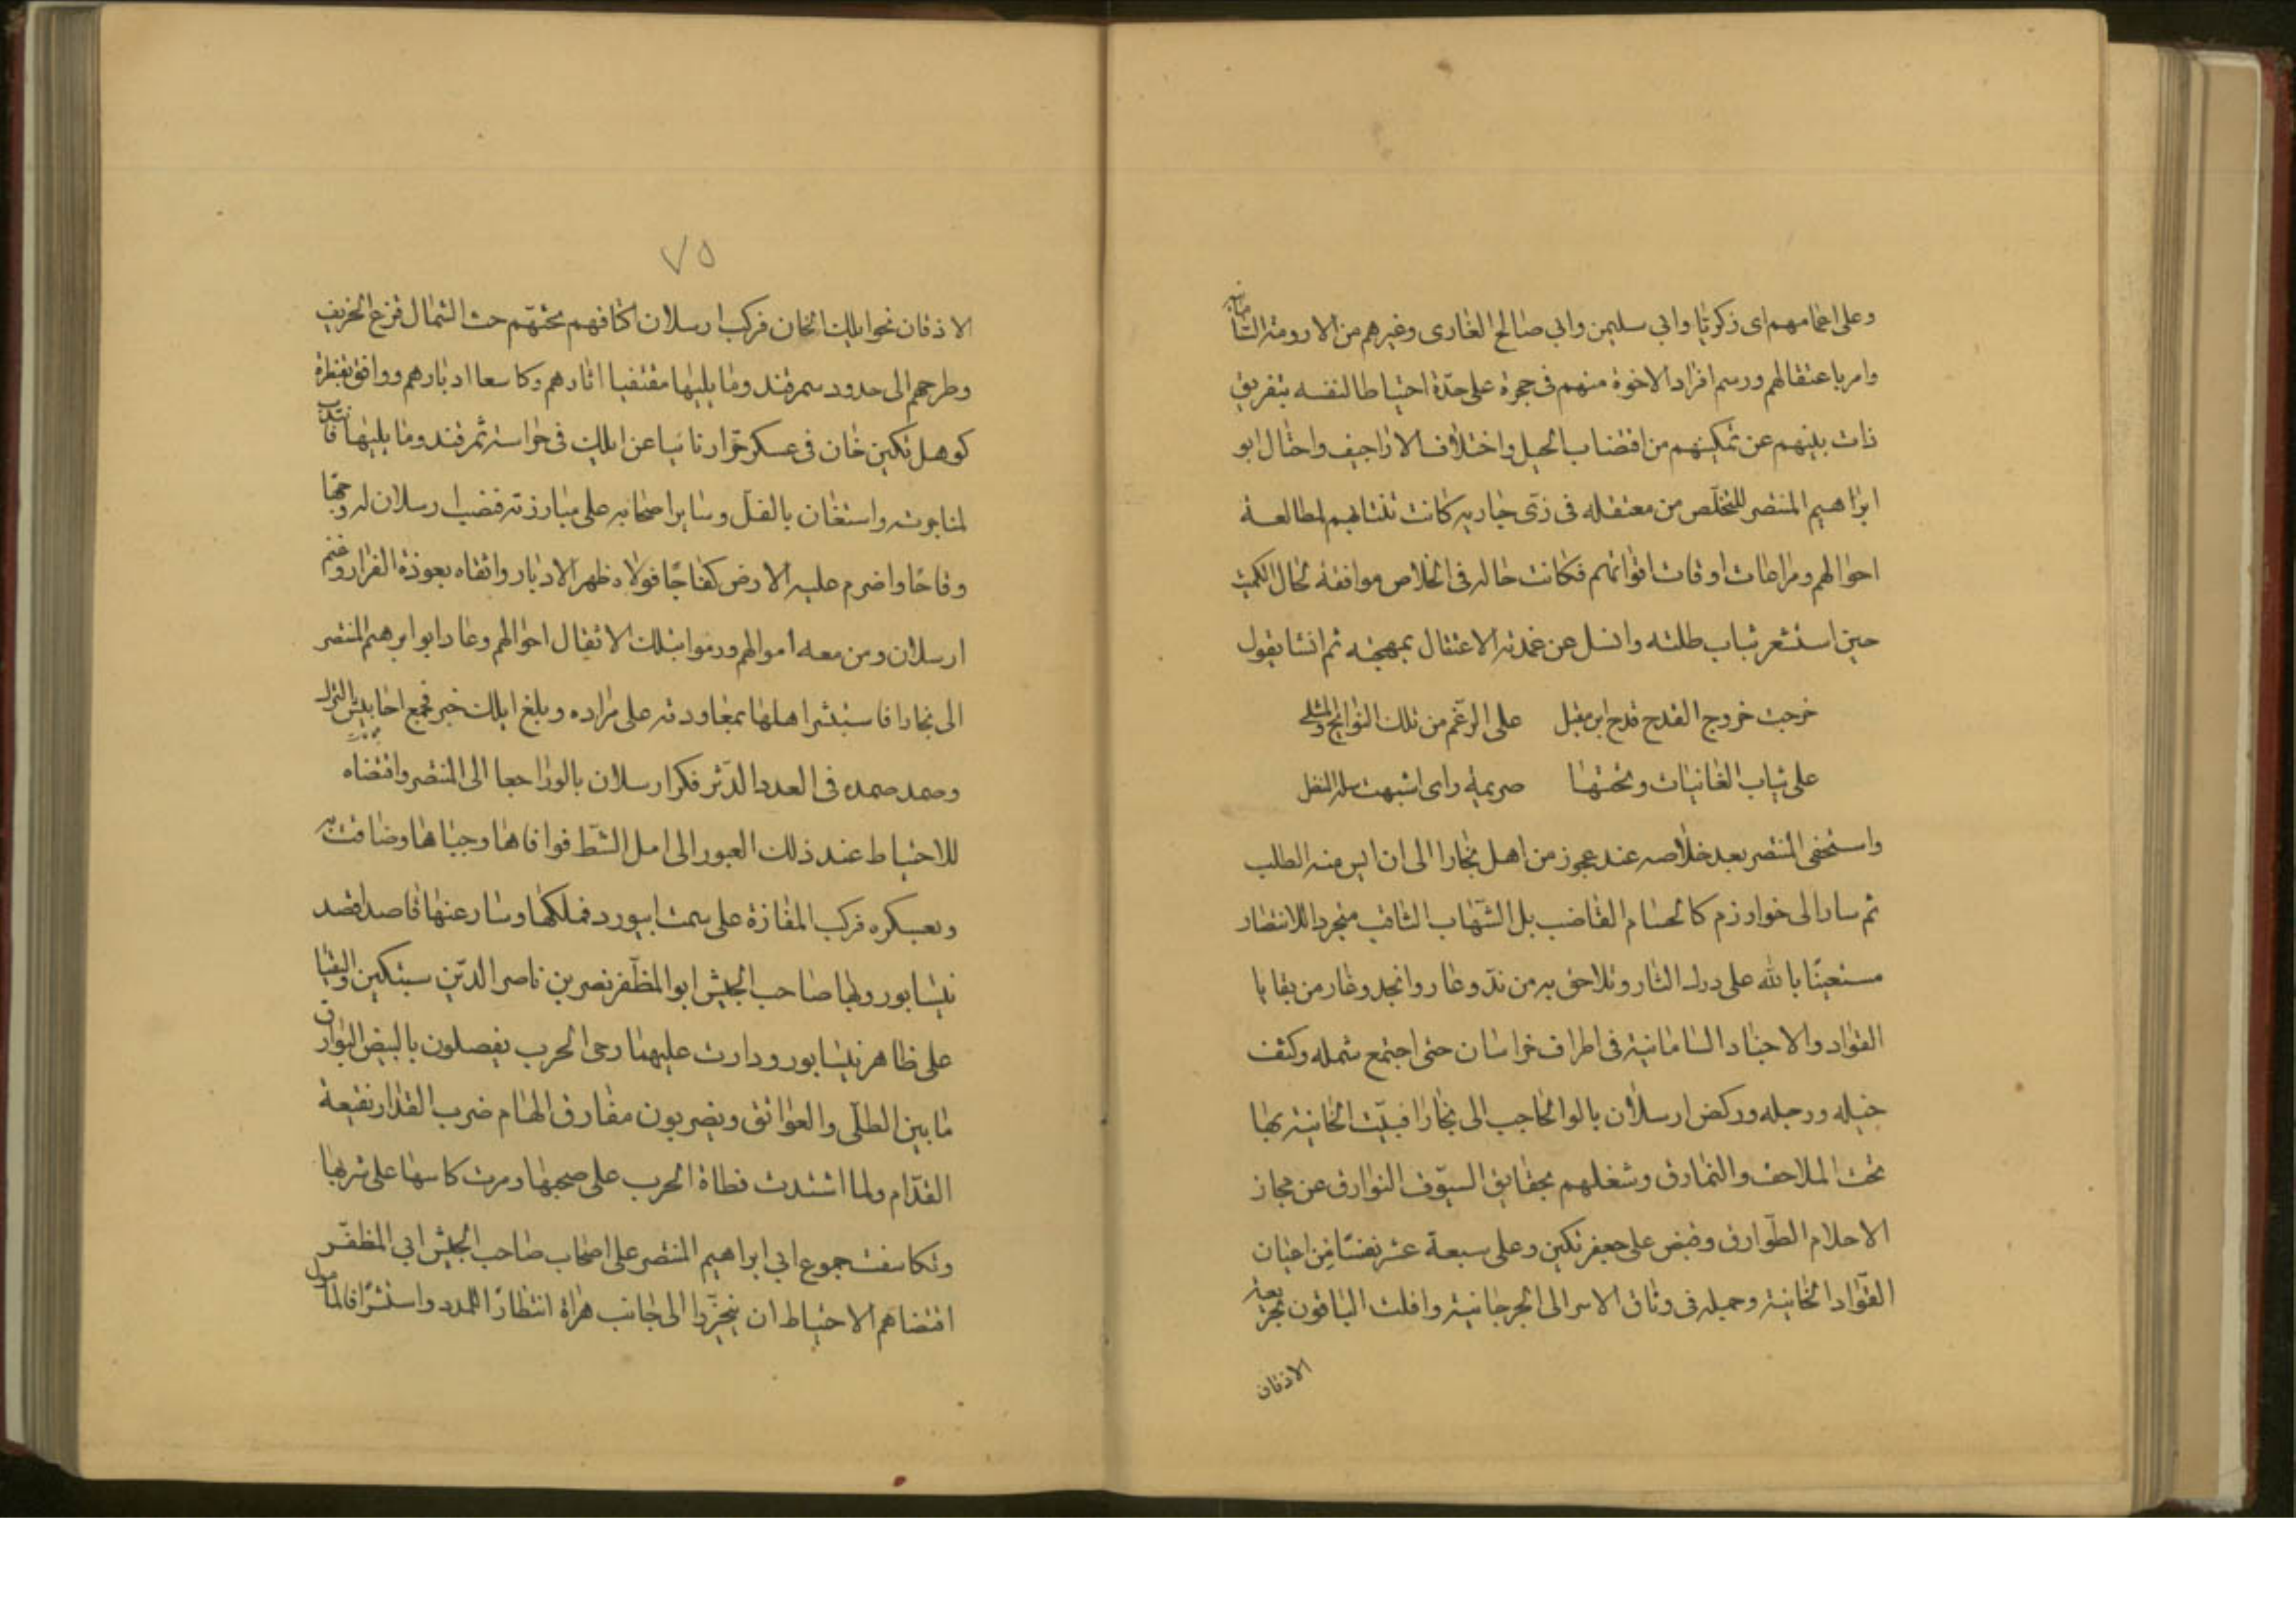 وعلى اعمامهم ابى زكريّا وابي سليمن وابي صالح الغازى وغيرهم من الارومة السّامانيّة
وامر باعتقالهم ورسم افراد الاخوة منهم فى حجرة على حدّة احتياطا لنفسه بتفريق
ذات بينهم عن تمكينهم من اقتضاب الحيل واختلاف الاراجيف واحتال ابو
ابراهيم المنتصر للتخلّص من معتقله فى زى جارية كانت تنتابهم لمطالعة
احوالهم ومراعات اوقات اقواتهم فكانت حاله فى الخلاص موافقة لحال الكميت
حين استشعر ثياب طلته وانسل عن غمدة الاعتقال بمهجته ثم انشا يقول
خرجت خروج القدح قدح ابن مقبل على الرّغم من تلك النوابح والمشلى
على ثياب الغانيات وتحتها صريمة راى اشبهت سلة النصل
واستخفى المنتصر بعد خلاصه عند عجوز من اهل بخارا الى ان ايس منه الطلب
ثم سار الى خوارزم كالحسام القاضب بل الشّهاب الثاقب متجردا للانتصار
مستعينًا بالله على درك الثار وتلاحق به من ندّ وغار وانجد وغار من بقايا
القواد والاجناد السامانية فى اطراف خراسان حتى اجتمع شمله وكثف
خيله ورجله وركض ارسلان بالوا الحاجب الى بخارا فبيّت الخانية بها
تحت الملاحف والنمارق وشغلهم بحقايق السيّوف البوارق عن مجاز
الاحلام الطّوارق وقبض على جعفر تكين وعلى سبعة عشر نفسًا من اعيان
القوّاد الخانية وحملهم فى وثاق الاسر الى الجرجانية وافلت الباقون بجريعة
الاذقان
٧٥
الاذقان نحو ايلك الخان فركب ارسلان اكتافهم يحثهم حث الشمال قزع الخريف
وطرحهم الى حدود سمرقند وما يليها مقتفيا اثارهم وكاسعا ادبارهم ووافق بقنطرة
كوهل تكين خان فى عسكر جرّار نائبا عن ايلك فى حراسة سمرقند وما يليها فانتدب
لمناجزته واستعان بالفلّ وساير اصحابه على مبارزته فنصب ارسلان له وجها
وقاحًا واضرم عليه الارض كفاحًا فولاه ظهر الادبار واتقاه بعوذة الفرار وغنم
ارسلان ومن معه اموالهم ورموا بتلك الانفال احوالهم وعاد ابو ابرهيم المنتصر
الى بخارا فاستبشر اهلها بمعاودته على مراده وبلغ ايلك خبره فجمع احابيش الترك
وصمد صمده فى العدد الدّثر فكر ارسلان بالو راجعا الى المنتصر واقتضاه
للاحتياط عند ذلك العبور الى امل الشّط فوافاها وجباها وضاقت به
وبعسكره فركب المفازة على سمت ابيورد فملكها وسار عنها قاصدا قصد
نيسابور وبها صاحب الجيش ابو المظفّر نصر بن ناصر الدّين سبتكين والتقيا
على ظاهر نيسابور ودارت عليهما رحى الحرب يفصلون بالبيض البوارق
ما بين الطلّى والعواتق ويضربون مفارق الهام ضرب القدار نقيعة
القدّام ولما اشتدت قطاة الحرب على صحبها ومرت كاسها على شربها
وتكاثفت جموع ابي ابراهيم المنتصر على اصحاب صاحب الجيش ابي المظفّر
اقتضاهم الاحتياط ان ينحرّوا الى جانب هراة انتظارًا للمدد واستشرافا لمامول